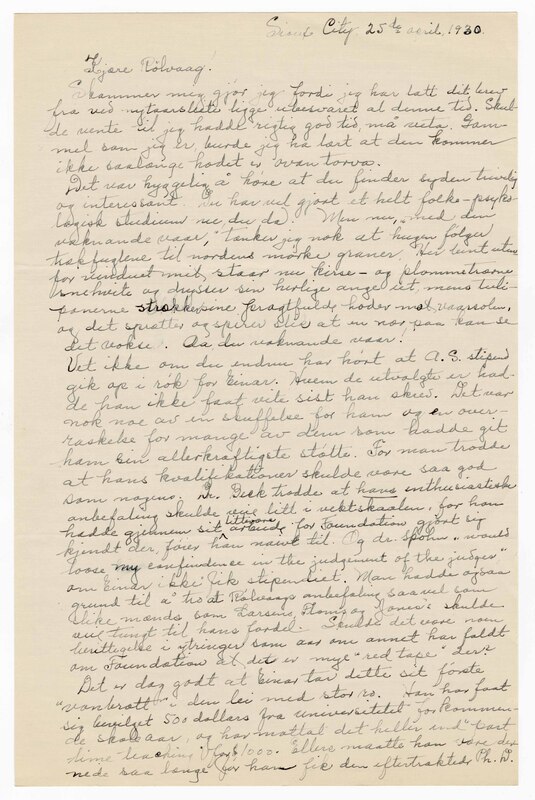 Sioux City 25de april, 1930.
Kjære Rölvaag!
Skammer meg gjør jeg fordi jeg har latt dit brev
fra ved nytaarsleite ligge ubesvaret al denne tid. Skul-
de vente til jeg hadde rigtig god tid, må vita. Gam-
mel som jeg er burde jeg ha lært at den kommer
ikke saalænge hodet er ovan torva.
Det var hyggelig å höre at du finder syden trivelig
og interessant. Du har vel gjort et helt folke-psyko-
logisk studium nu du da. Men nu, "med den
vaknande vaar," tænker jeg nok at hugen følger
trækfuglene til nordens mörke graner. Her tent uten
for vinduet mit, staar nu kirse- og plommetrærne
snehvite og drysser sin herlige ange ut, mens tuli-
panerne strækker sine fragtfulde hoder mot vaarsolen,
og det spretter og spirer slik at en nær paa kan se
det vokse. Aa du vaknande vaar!
Vet ikke om du endnu har hört at A.S. stipend
gik op i rök for Einar. Hvem de utvalgte er had-
de han ikke faat vite sist han skrev. Det var
nok noe av en skuffelse for ham og en over-
raskelse for mange av dem som hadde git
ham sin allerkraftigste stötte. For man trodde
at hans kvalifikationer skulde være saa god
som nogens. Dr. trodde at hans enthusiastiske
anbefaling skulde veie litt i vektskaalen, for han
hadde gjennem sit litterære arbeide for Foundation gjort sig
kjendt der, föier han naivt til. Og dr. Spohn "would
loose my confindence in the judgement of the judges"
om Einar ikke fik stipendiet. Man hadde ogsaa
grund til å tro at Rölvaags anbefaling saavel som
slike mænds som Larsens, Floms og Jones's skulde
veie tungt til hans fordel. Skulde det være noen
berettigelse i ytringer som aar om annet har faldt
om Foundation at det er mye "red tape" der?
Det er dag godt at Einar tar dette sit förste
"vonbrott" i den lei med stor ro. Han har faat
sig bevilget 500 dollars fra universitetet for kommen-
de skoleaar, og har mottat det heller end "part
time teaching" for $1000. Ellers maatte han være der
nede saa længe för ham fik den eftertraktede Ph. D.